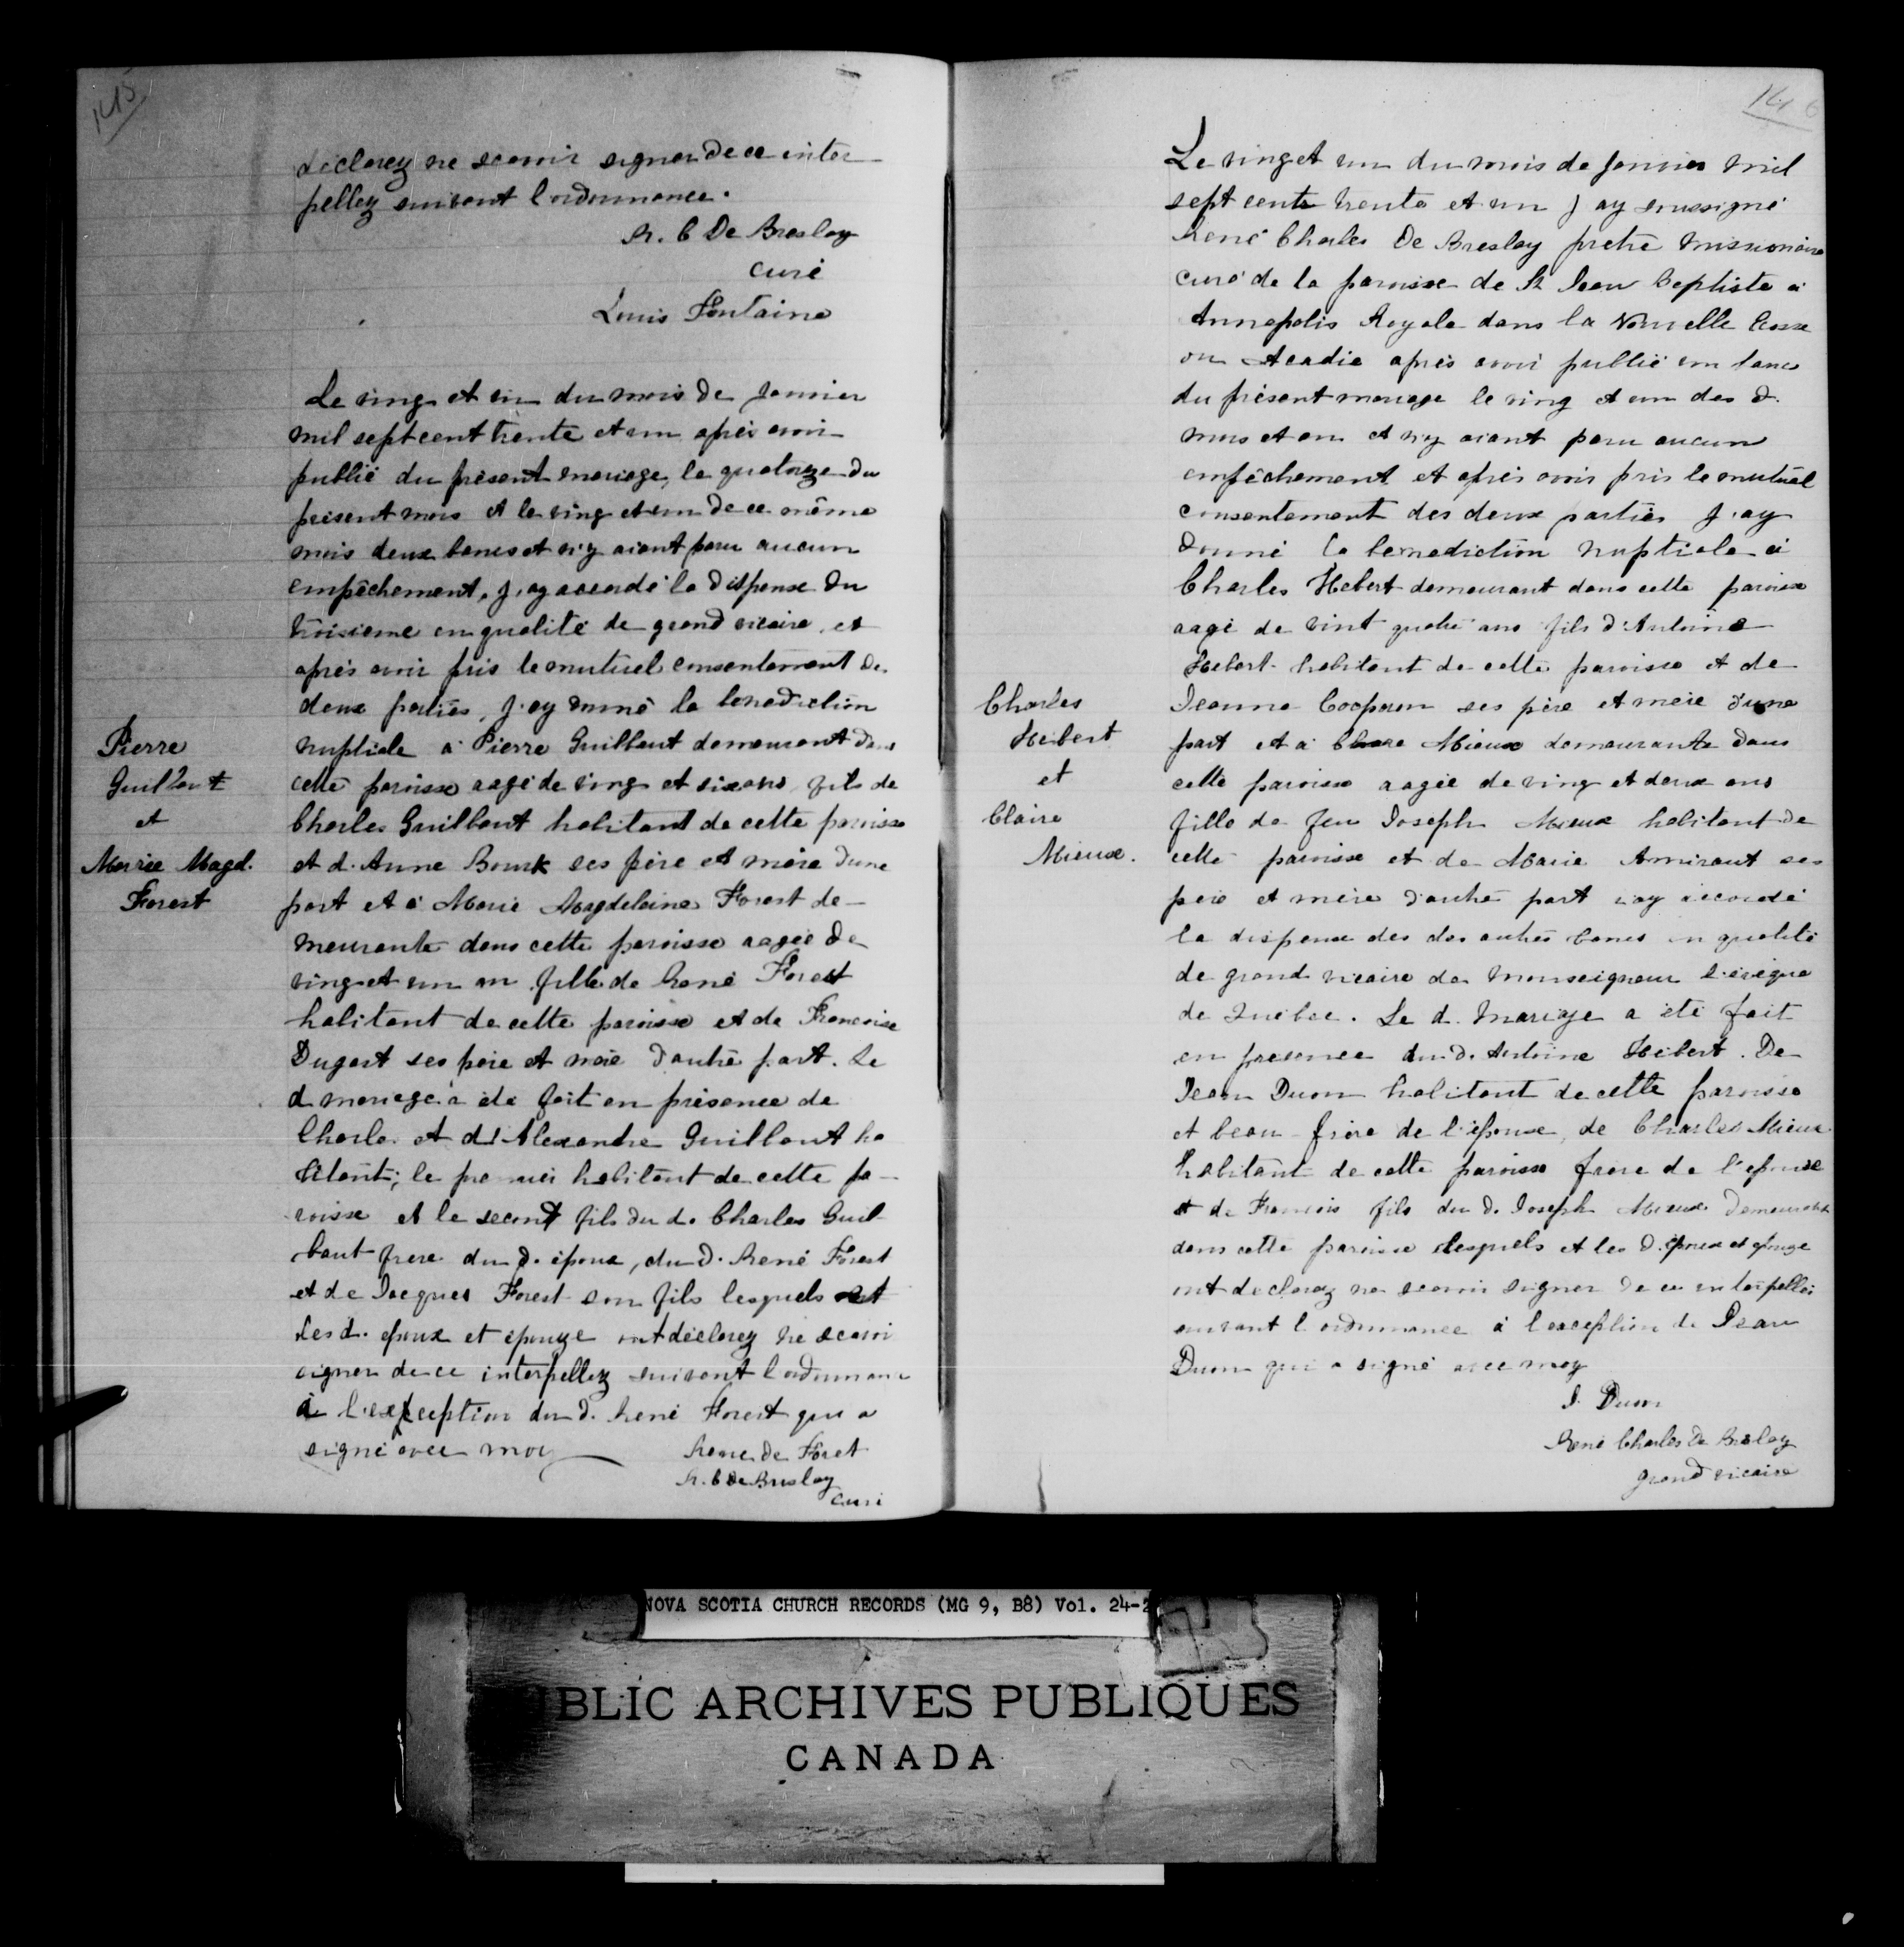 145
déclarez ne scavoir signer de ce inter
pellez suivant l'ordonnance.
R. C De Breslay
curé
Louis Fontaine
Le ving et un du mois de Janvier
mil sept cent trente et un après avoir
publié du présent mariage, le quatorze du
présent mois et le ving et un de ce même
mois deux bancs et n'y aiant paru aucun
empêchement, j'ay accordé la dispense du
troisieme en qualité de grand vicaire, et
après avoir pris le mutuel consentement de
deux parties, j'ay donné la benediction
nuptiale à Pierre Guilbaut demeurant dans
cette paroisse aagé de ving et six ans, fils de
Charles Guilbaut habitant de cette paroisse
et d. Anne Bourk ses père et mère d'une
part et à Marie Magdelaine Forest de-
meurante dans cette paroisse aagée de
ving et un an fille de René Forest
habitant de cette paroisse et de Francoise
Dugast ses père et mère d'autre part. Le
d mariage à été fait en présence de
Charles et d'Alexandre Guilbaut ha
bitant; le premier habitant de cette pa-
roisse et le second fils du d. Charles Guil
baut frere du d. époux, du d. René Forest
et de Jacques Forest son fils lesquels et
les d. epoux et épouze ont déclarez ne scavoi
signer de ce interpellez suivant l'ordonnance
à l'exception du d. René Forest qui a
signé avec moy
Rene de Foret
R. C de Breslay
Curé
Pierre
Guilbaut
et
Marie Magd.
Forest
146
Le ving et un du mois de Janvier mil
sept cente trente et un j ay soussigné
René Charles De Breslay pretre missionaire
curé de la paroisse de St Jean Baptiste à
Annapolis Royale dans la Nouvelle Ecosse
ou Acadie après avoir publié un banc
du présent mariage le ving et un des d.
mois et an et n'y aiant paru aucun
empêchement et après avoir pris le mutuel
consentement des deux parties j'ay
donné la benediction nuptiale à
Charles Hebert demeurant dans cette paroisse
aagé de vint quatre ans fils d'Antoine
Hebert habitant de cette paroisse et de
Jeanne Corporon ses père et mère d'une
part et à Claire Mieux demeurante dans
cette paroisse aagée de ving et deux ans
fille de feu Joseph Mieux habitant de
cette paroisse et de Marie Amiraut ses
père et mère d'autre part j'ay accordé
la dispense des des autres bancs en qualité
de grand vicaire de Monseigneur l'évêque
de Québec. Le d. mariage a été fait
en presence du d. Antoine Hébert. De
Jean Duon habitant de cette paroisse
et beau-frère de l'épouse, de Charles Mieux
habitant de cette paroisse frere de l'epouse
et de Francois fils du d. Joseph Mieux demeurant
dans cette paroisse lesquels et les d. époux et epouze
ont declarez ne scavoir signer de ce interpellés
suivant l'ordonnance à l'exception de Jean
Duon qui a signé avec moy
J. Duon
René Charles de Breslay
grand vicaire
Charles
Hebert
et
Claire
Mieux.
NOVA SCOTIA CHURCH RECORDS (MG 9, B8) Vol. 24-2
BLIC ARCHIVES PUBLIQUES
CANADA